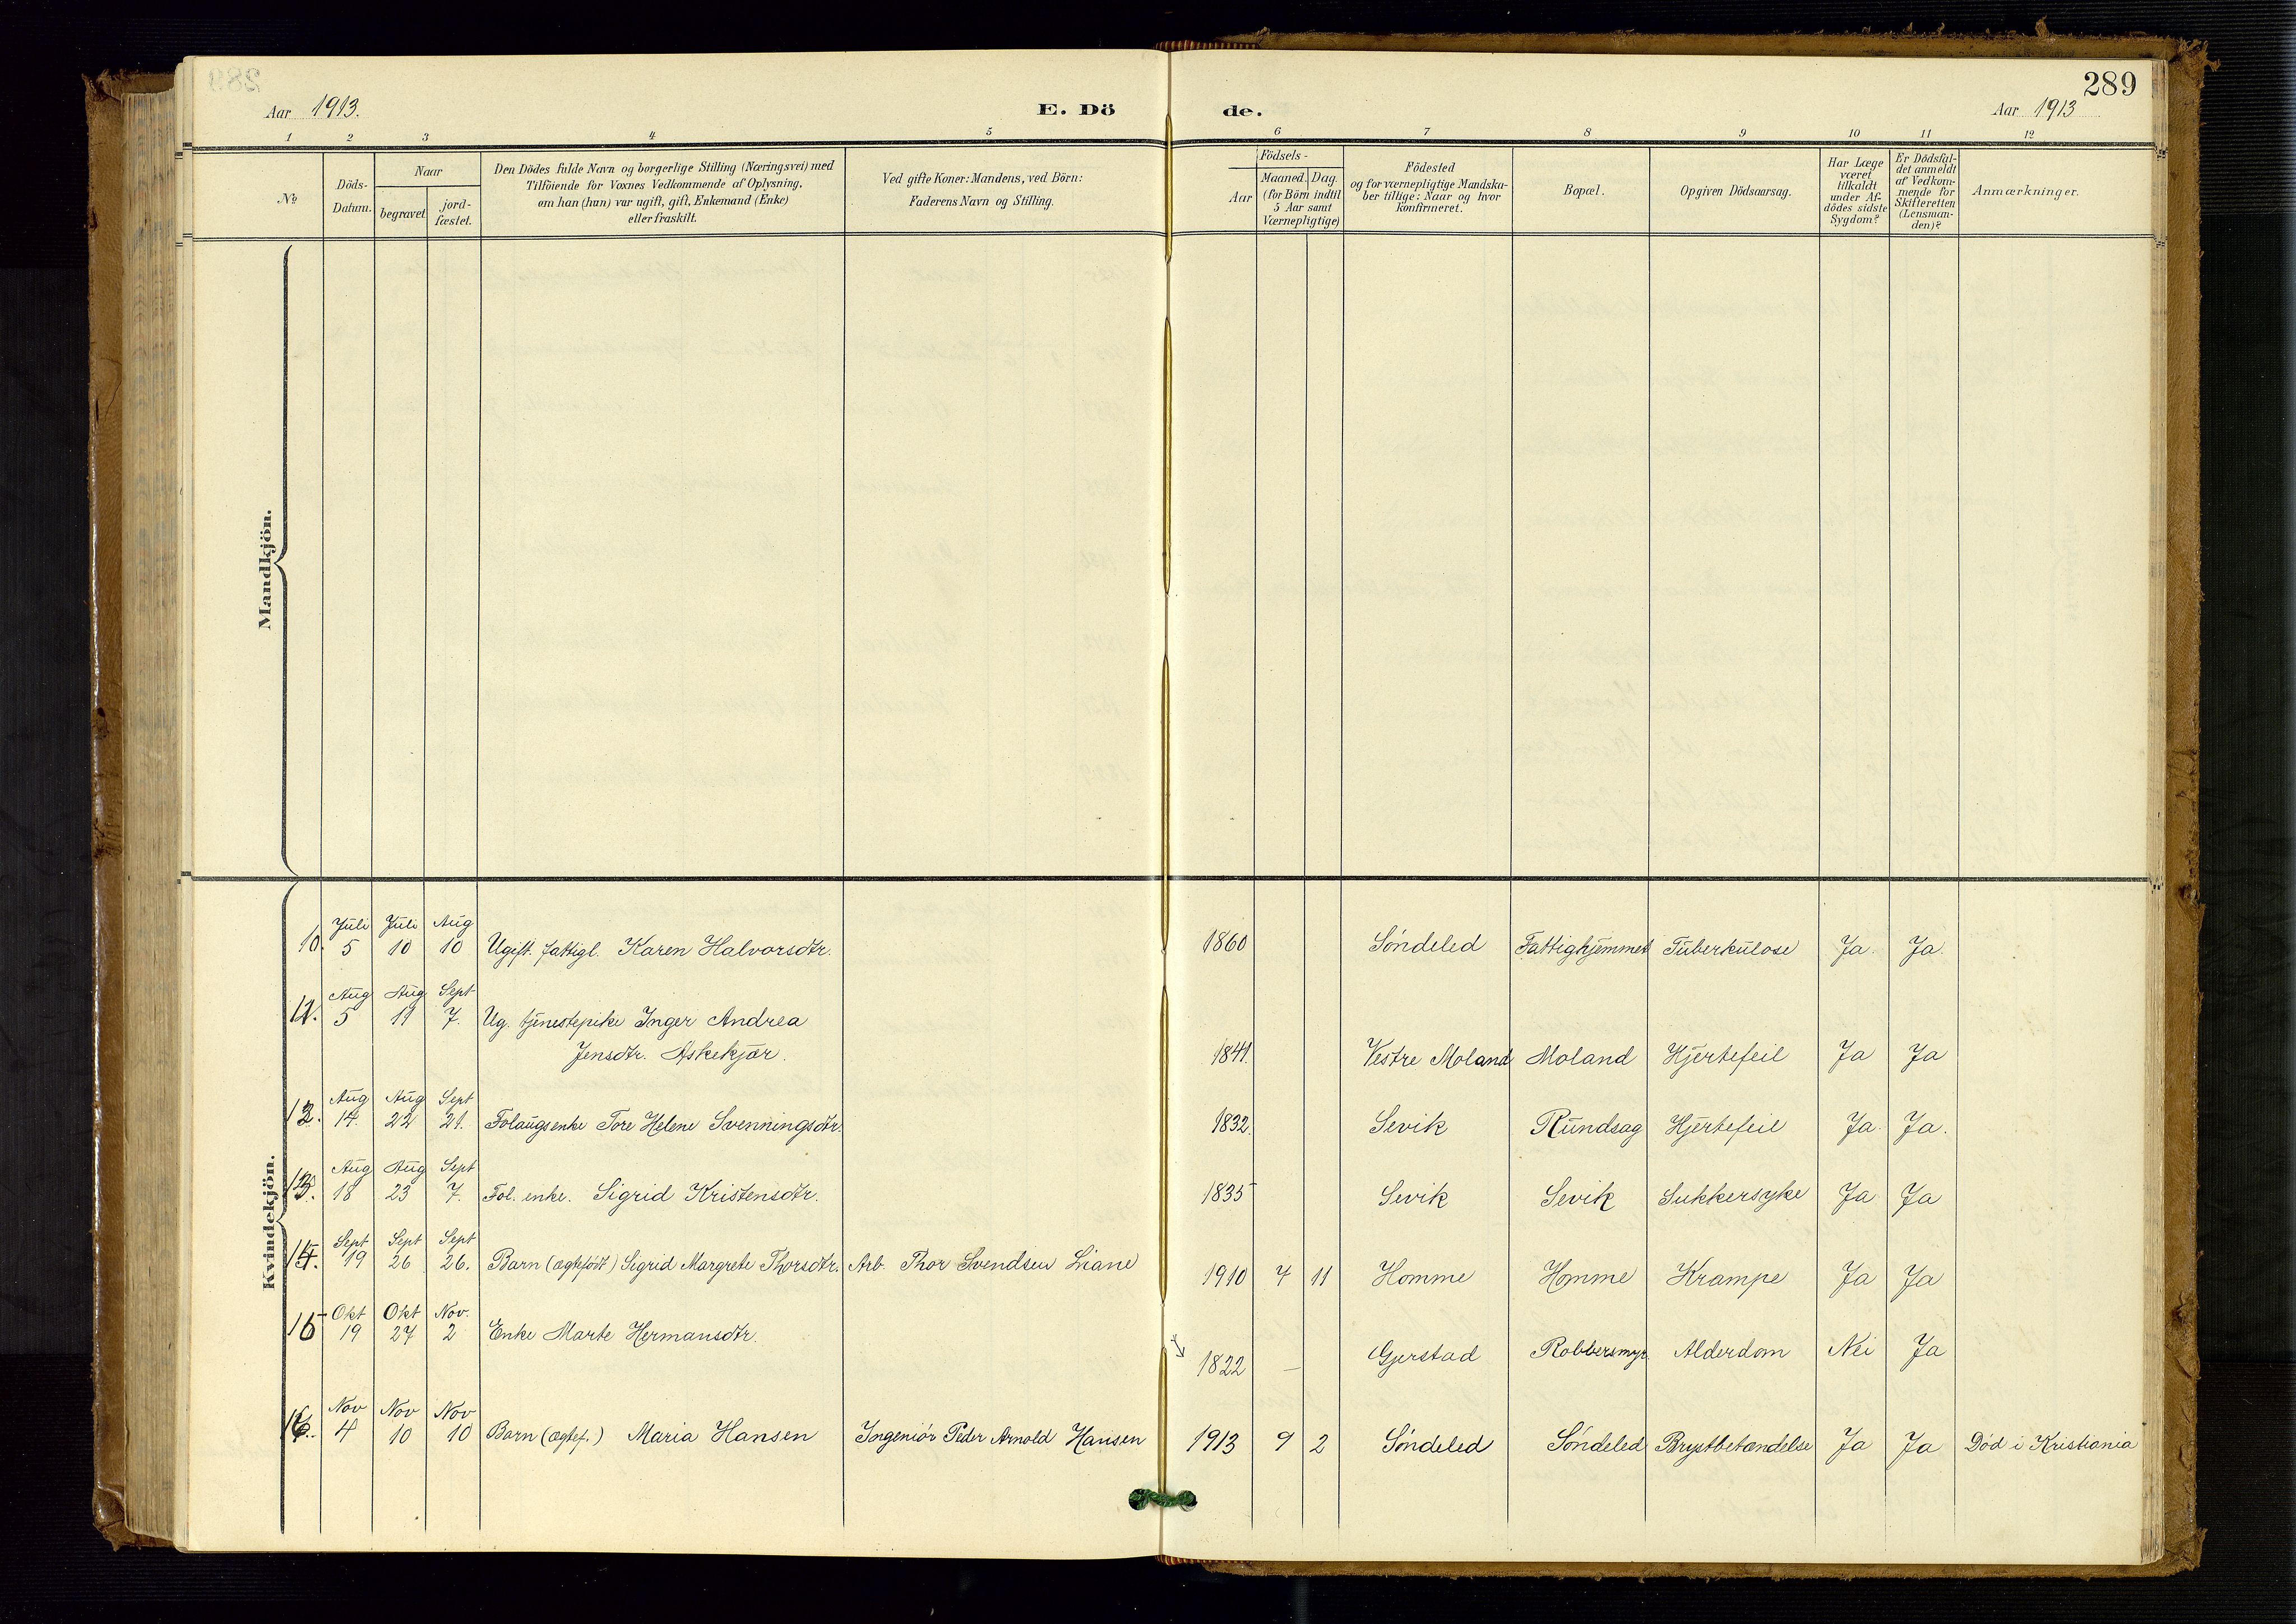 289
Aar 1913.
E. Dö de.
Aar 1913
1 2 3 4 5 6 7 8 9 10 11 12
№
Döds-
Datum.
Naar
begravet
jord-
fæstet.
Den Dödes fulde Navn og borgerlige Stilling (Næringsvei) med
Tilföiende for Voxnes Vedkommende af Oplysning,
om han (hun) var ugift, gift, Enkemand (Enke)
eller fraskilt.
Ved gifte Koner: Mandens, ved Börn:
Faderens Navn og Stilling.
Födsels-
Aar
Maaned. Dag.
(for Börn indtil
5 Aar samt
Værnepligtige)
Födested
og for værnepligtige Mandska-
ber tillige: Naar og hvor
konfirmeret.
Bopæl.
Opgiven Dödsaarsag.
Har Læge
været
tilkaldt
under Af-
dödes sidste
Sygdom?
Er Dödsfal-
det anmeldt
af Vedkom-
mende for
Skifteretten
(Lensman-
den)?
Anmærkninger.
Mandkjön.
Kvindekjön.
Juli Juli Aug
10. 5 10 10 Ugift. fattigl. Karen Halvorsdtr. 1860 Søndeled Fattighjemmet Tuberkulose Ja. Ja.
Aug Aug Sept
11. 5 11 7. Ug. tjenestepike Inger Andrea
Jensdtr. Askekjær. 1841. Vestre Moland Moland Hjertefeil Ja Ja
Aug Aug Sept
12. 14. 22 21. Folaugsenke Tore Helene Svenningsdtr. 1832. Sevik Rundsag Hjertefeil Ja. Ja.
Aug Aug Sept
13. 18 23 7. Fol. enke. Sigrid Kristensdtr. 1835 Sevik Sevik Sukkersyke Ja Ja
Sept Sept Sept
14. 19 26 26. Barn (ægtefødt) Sigrid Margrete Thorsdtr. Arb. Thor Svendsen Liane 1910 4 11 Homme Homme Krampe Ja Ja
Okt Okt Nov.
15 19 27 2 Enke Marte Hermansdtr. 1822 — Gjerstad Robbersmyr. Alderdom Nei Ja
Nov Nov Nov
16. 4 10 10 Barn (ægtef.) Maria Hansen Ingeniør Peder Arnold Hansen 1913 9 2 Søndeled Søndeled Brystbetændelse Ja Ja Død i Kristiania